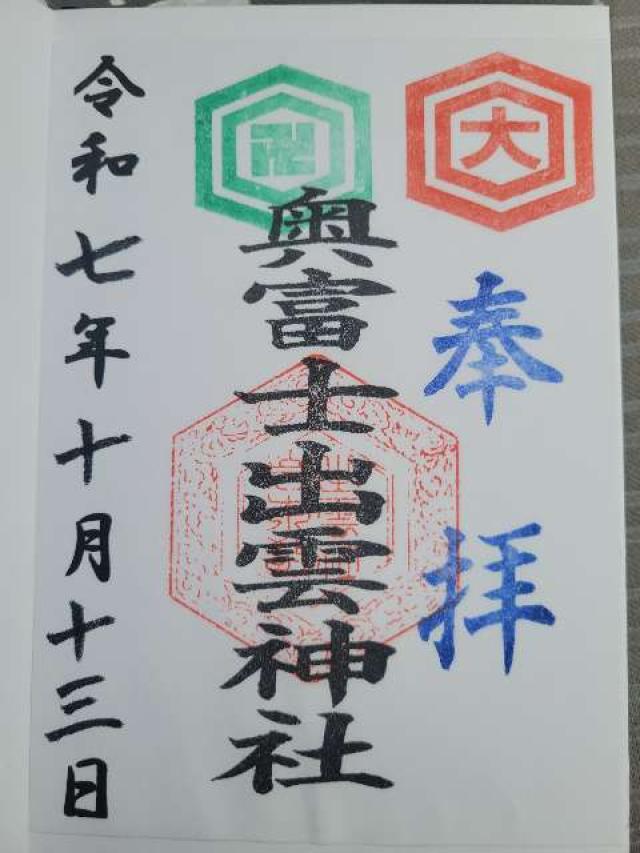 大
奉拝
奥富士出雲神社
令和七年十月十三日